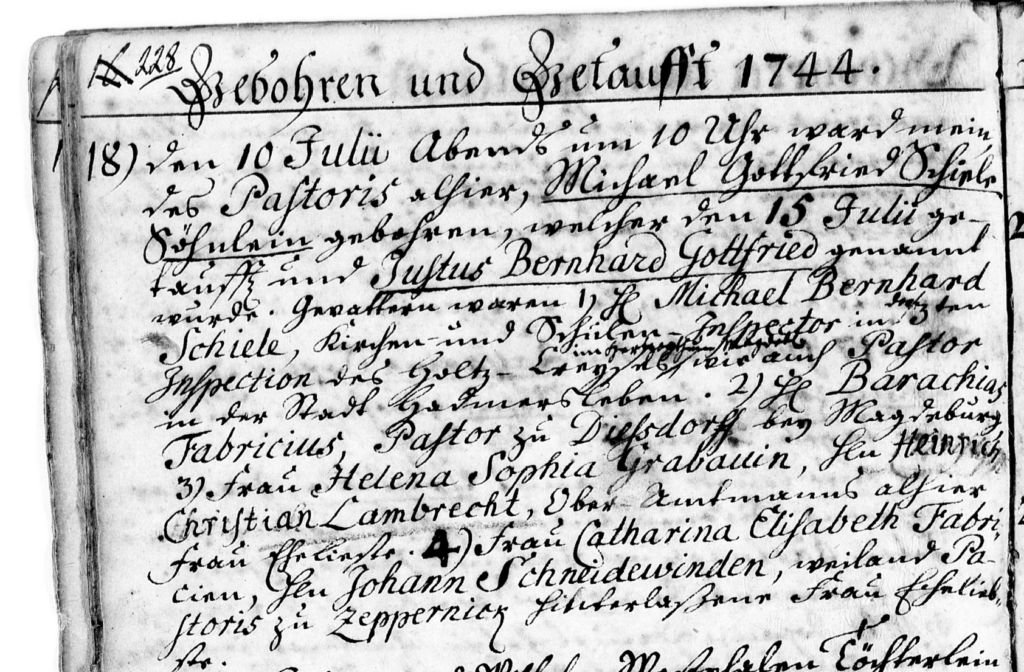 228
Gebohren und Getaufft 1744.
18) den 10 Julii Abends um 10 Uhr ward mein,
des Pastoris alhier, Michael Gottfried Schiele
Söhnlein gebohren, welcher den 15 Julii ge-
taufft und Justus Bernhard Gottfried genannt
wurde. Gevattern waren 1) H. Michael Bernhard
Schiele, Kirchen- und Schulen-Inspector in der 3ten
Inspection des Holtz-Creyses im Herzogthum Magdeb. wie auch Pastor
in der Stadt Hadmersleben. 2) H. Barachias
Fabricius, Pastor zu Diesdorff bey Magdeburg
3) Frau Helena Sophia Grabauin, Hln Heinrich
Christian Lambrecht, Ober-Amtmanns alhier
Frau Eheliebste. 4) Frau Catharina Elisabeth Fabri-
cien, Hln Johann Schneidewinden, weiland Pa-
storis zu Zeppernick hinterlaßene Frau Ehelieb-
ste.
Westphalen Töchterlein